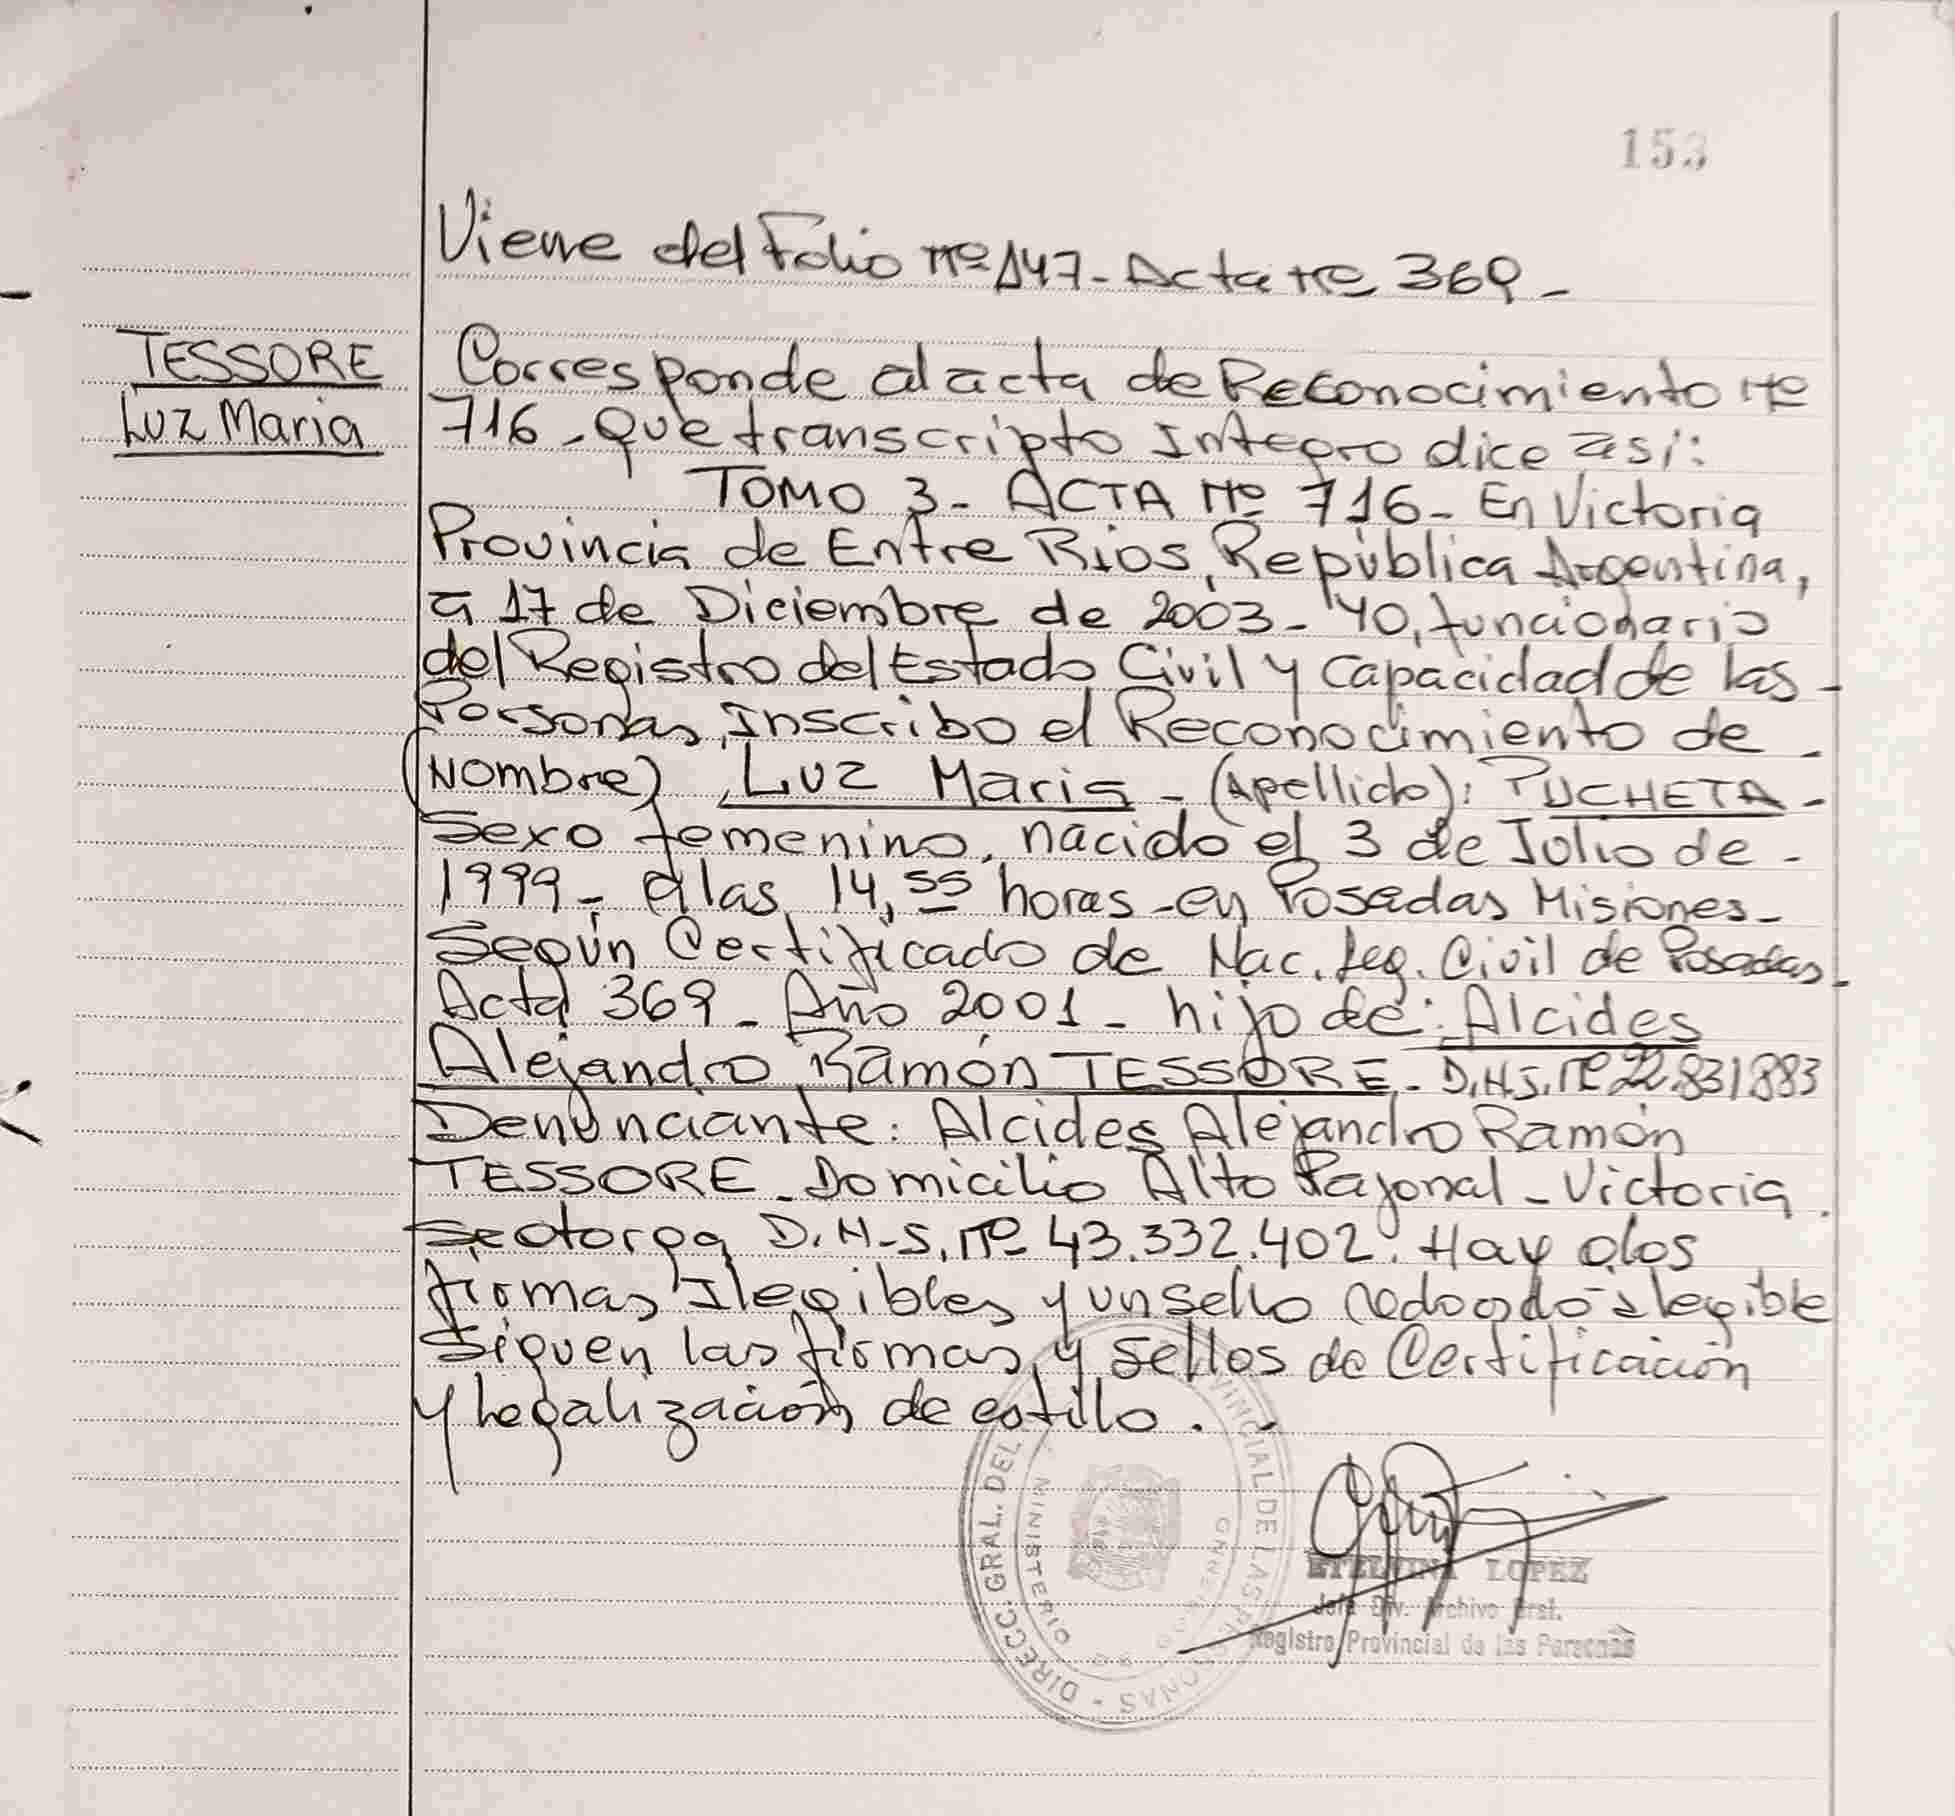 153
Viene del Folio Nº 147 - Acta Nº 369 -
TESSORE
Luz Maria
Corresponde al acta de Reconocimiento Nº
716 - Que transcripto Integro dice así:
TOMO 3 - ACTA Nº 716 - En Victoria
Provincia de Entre Rios, República Argentina,
a 17 de Diciembre de 2003 - Yo, funcionario
del Registro del Estado Civil y Capacidad de las -
Personas, Inscribo el Reconocimiento de -
(Nombre) Luz Maria - (Apellido): PUCHETA -
Sexo femenino, nacido el 3 de Julio de -
1999 - a las 14,55 horas - en Posadas Misiones -
Según Certificado de Nac. Reg. Civil de Posadas -
Acta 369 - Año 2001 - hijo de: Alcides
Alejandro Ramón TESSORE - D.N.I. Nº 22.831.883
Denunciante: Alcides Alejandro Ramón
TESSORE - Domicilio Alto Pajonal - Victoria.
Se otorga D.N.I. Nº 43.332.402. Hay dos
firmas Ilegibles y un sello redondo ilegible
Siguen las firmas y sellos de Certificación
y Legalización de estilo. -
DIRECC. GRAL. DEL VINCIAL DE LAS PERSONAS -
MINISTERIO DE GOBIERNO
ETELVINA LOPEZ
Jefa Div. Archivo Gral.
Registro Provincial de las Personas